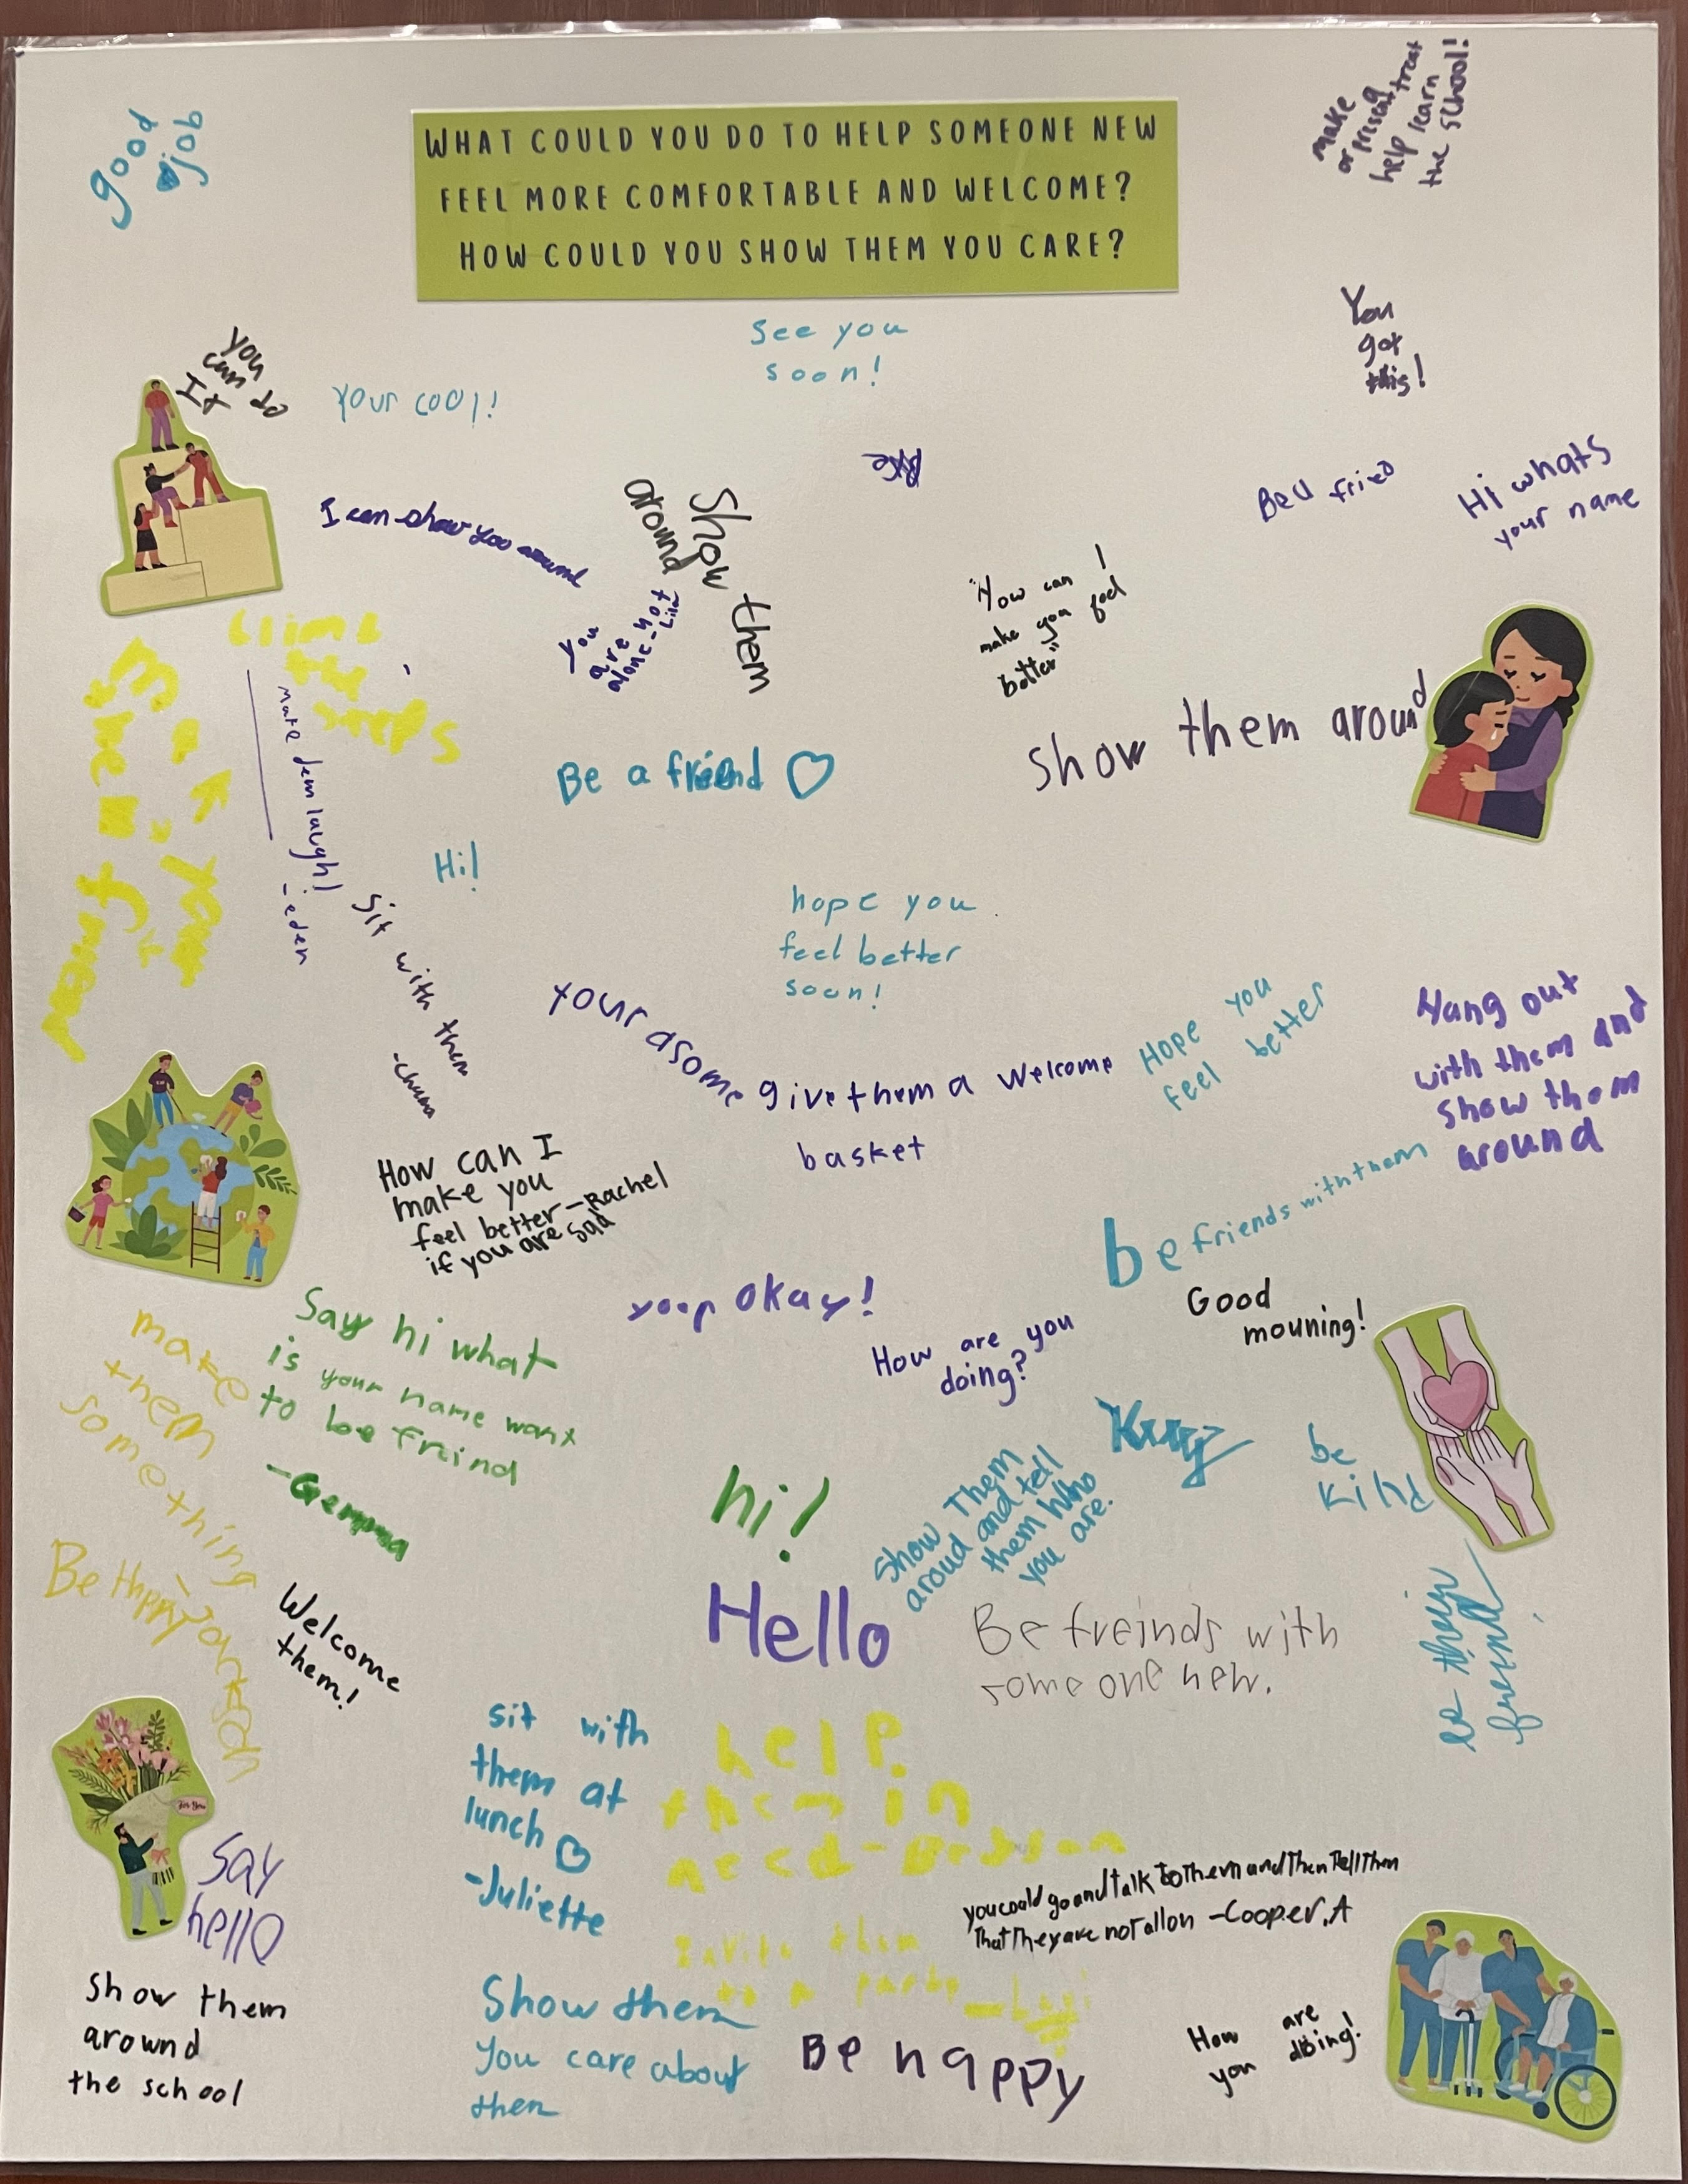 WHAT COULD YOU DO TO HELP SOMEONE NEW
FEEL MORE COMFORTABLE AND WELCOME?
HOW COULD YOU SHOW THEM YOU CARE?
good
job
make
or present, treat
help learn
the school!
see you
soon!
You
got
this!
you
can do
It
Your cool!
I can show you around
Show them
around
you
are not
alone - Lila
Be a fried
Hi whats
your name
"How can I
make you feel
better"
Show them around
climb
the
steps
make dem laugh!
- eden
Be a friend
Hi!
sit with them
hope you
feel better
soon!
Your asome
give them a welcome
basket
Hope you
feel better
Hang out
with them and
show them
around
How can I
make you
feel better - Rachel
if you are sad
be friends with them
Good
mouning!
your okay!
How are you
doing?
Say hi what
is your name want
to be freind
- Gemma
make
them
something
hi!
Hello
Show Them
aroud and tell
them who
you are.
be
kind
Be Happy
Welcome
them!
Be freinds with
some one new.
be their
freind
sit with
them at
lunch
- Juliette
help
them in
need -
say
hello
you could go and talk to Them and Then Tell Them
That They are not allon - Cooper.A
Invite them
to a party
Show them
around
the school
Show them
you care about
them
Be happy
How are
you doing!